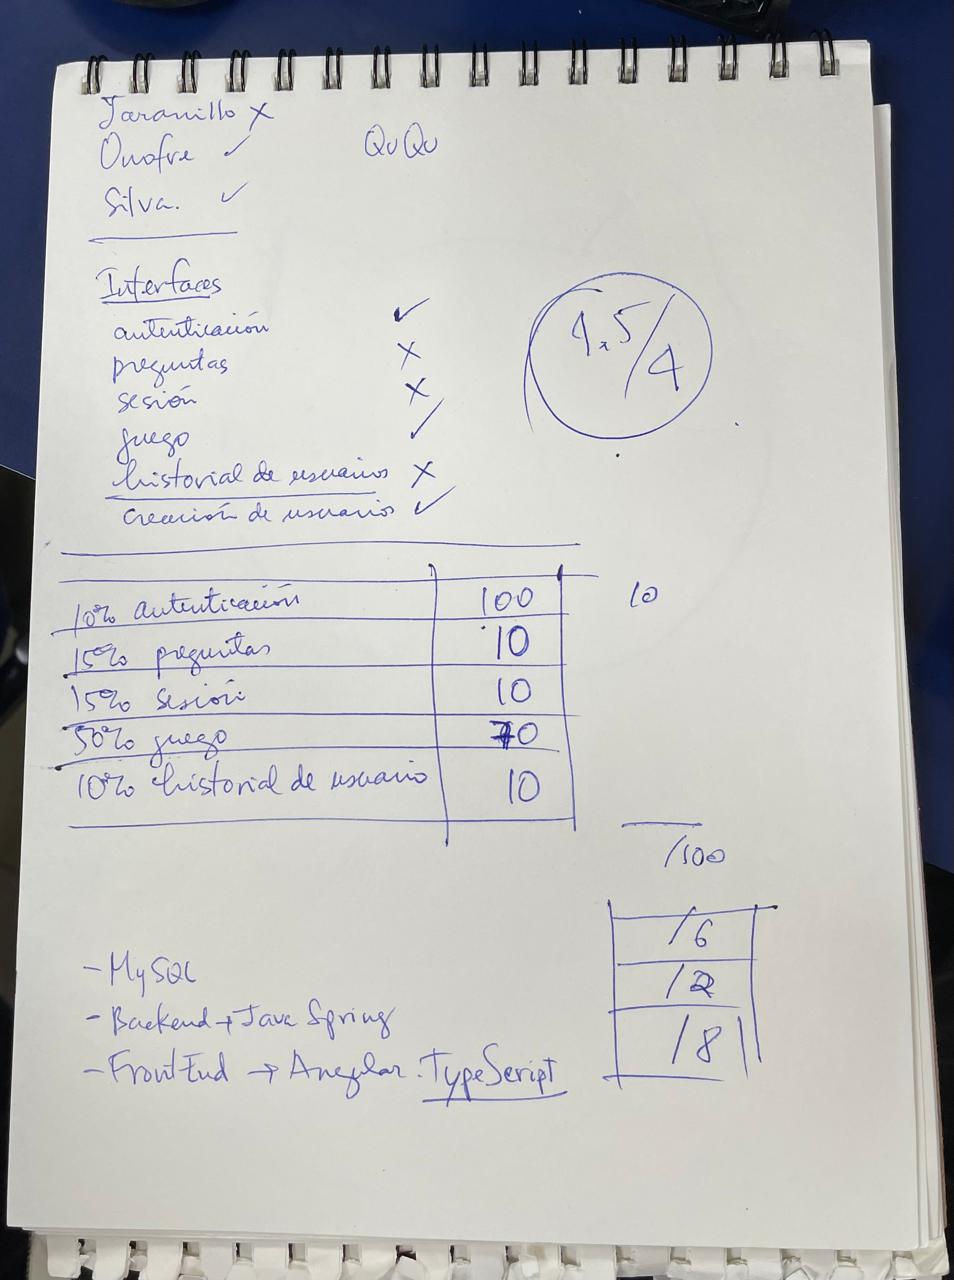 Jaramillo X
Onofre ✓
QuQu
Silva. ✓
Interfaces
autenticación ✓
preguntas X
sesión X
juego ✓
historial de usuarios X
creación de usuarios ✓
1.5/4
10% autenticación 100 10
15% preguntas 10
15% sesión 10
50% juego 70
10% historial de usuario 10
/100
/6
/2
/8
- MySQL
- Backend → Java Spring
- FrontEnd → Angular. TypeScript